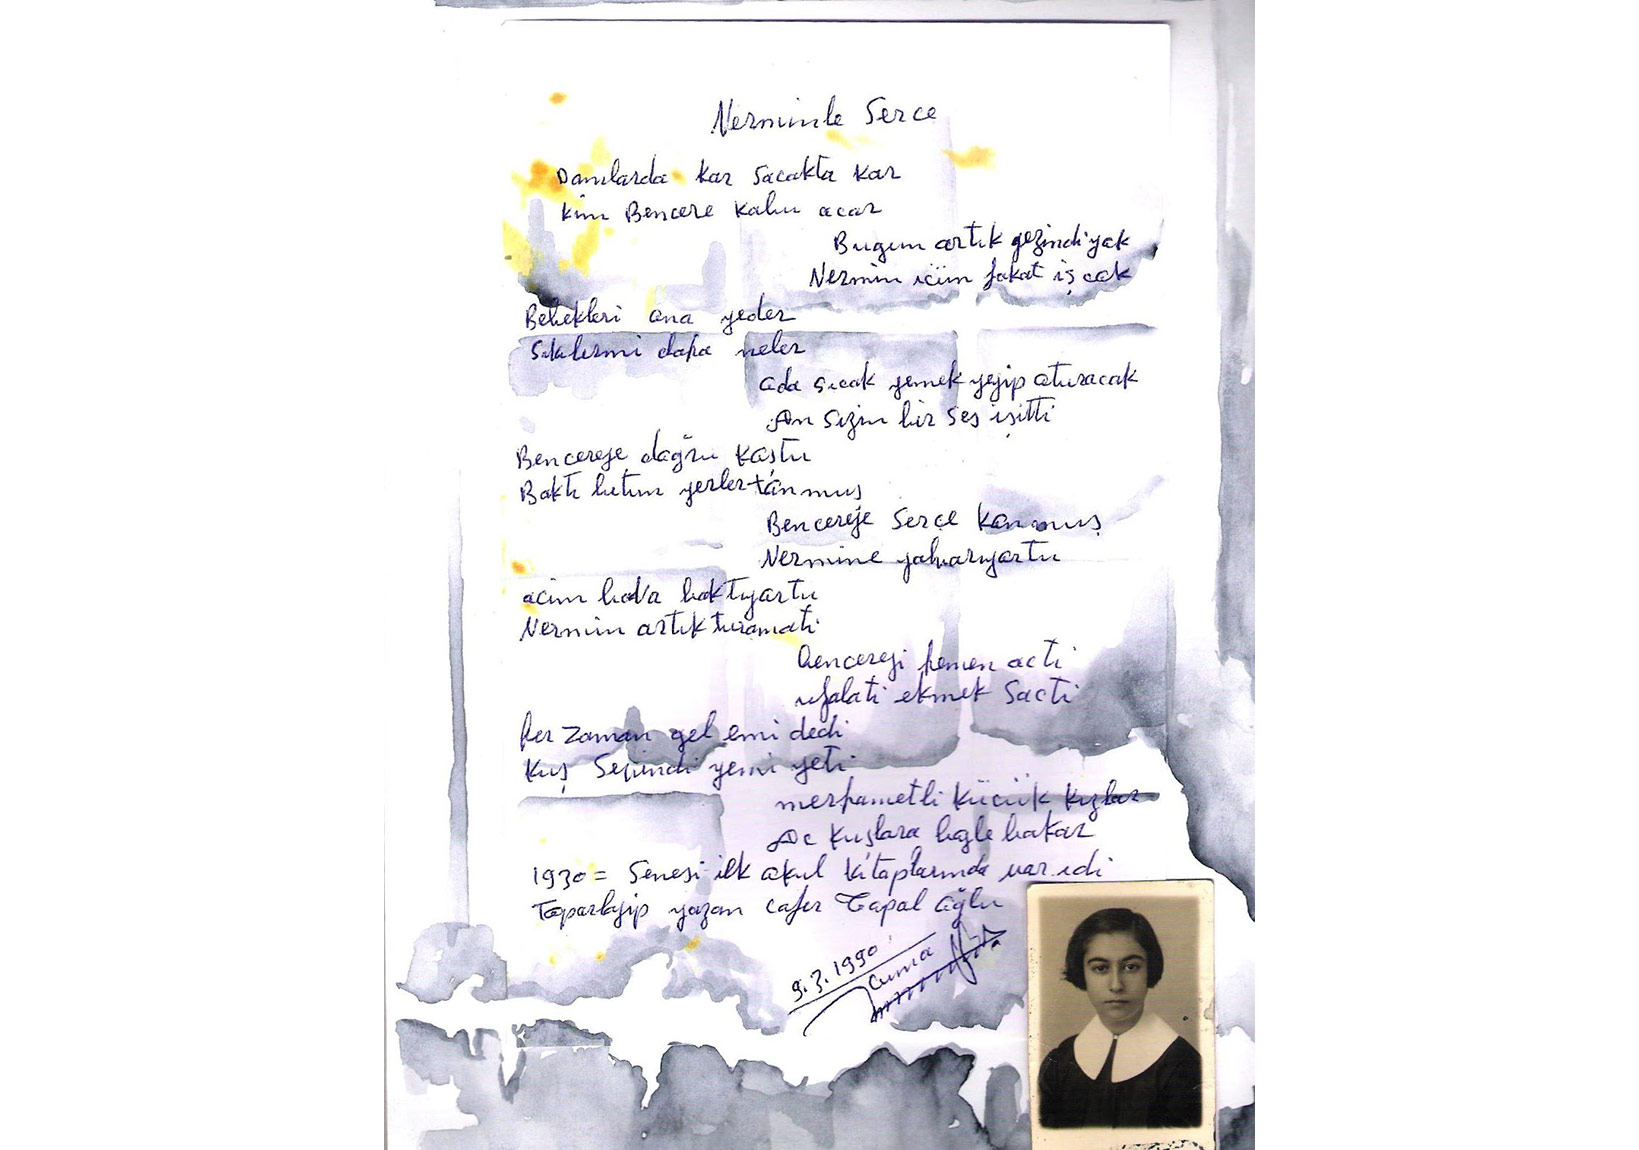 Nerminle Serce
Damlarda kar Sacakta kar
kim Bencere kabu acar
Bugun artık gezindi yak
Nermin icin fakat iş cok
Bebekleri ona yeder
Sıkılırmı daha neler
ada sıcak yemek yeyip oturacak
An sızın bir ses işitti
Bencereje dağru kaştu
Baktı butun yerler tanmuş
Bencereje Serçe kanmuş
Nermine yalvarıyartu
acim bava baktıyartu
Nermin artık turamatı
Bencereji hemen acti
ufalati ekmek Sacti
her zaman gel emi dedi
kuş Sevindi yemi yeti
merhametli kücük kızlar
Ac kuşlara bogle bakar
1930= Senesi ilk akul kitaplarında var idi
Toparlayip yazan cafer Tapal ağlu
9.3.1990
cuma